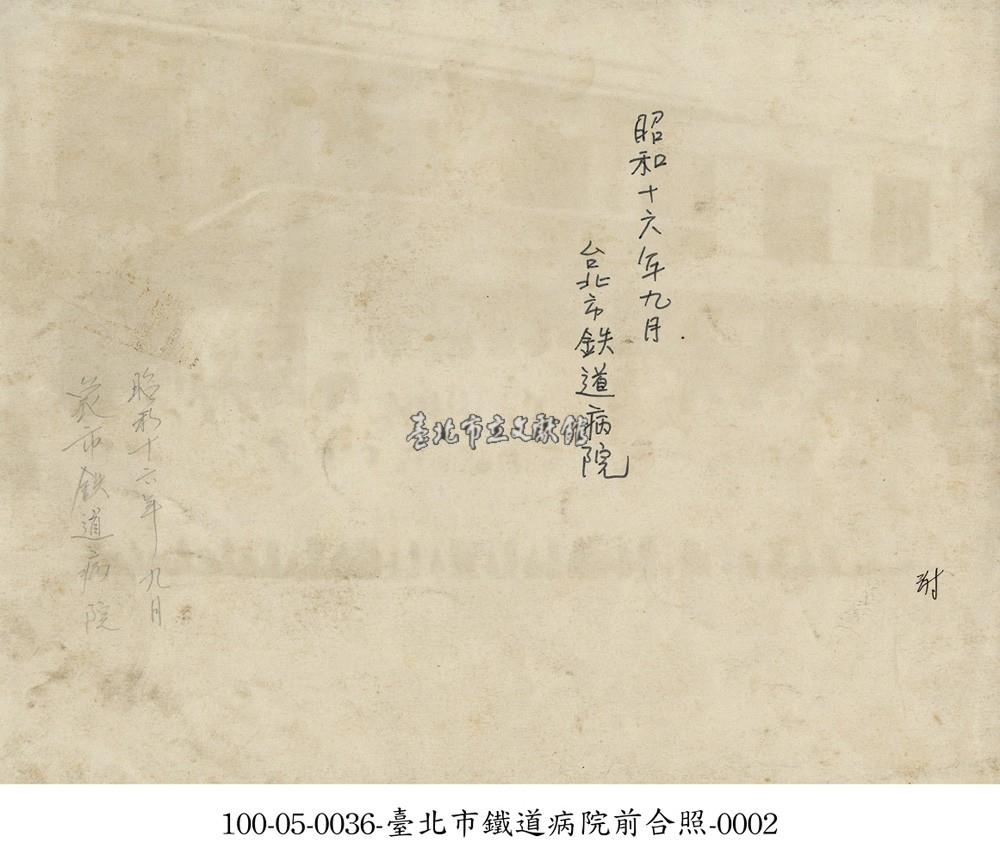 昭和十六年九月
台北市鉄道病院
臺北市立文獻館
昭和十六年九月
市鉄道病院
附
100-05-0036-臺北市鐵道病院前合照-0002